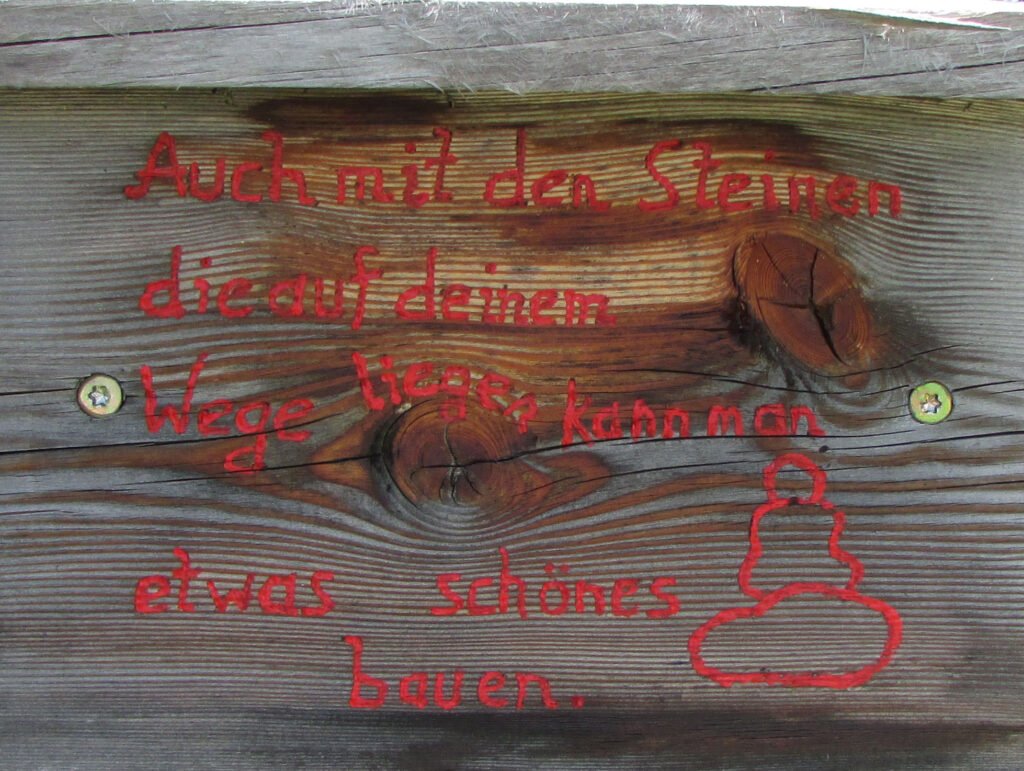 Auch mit den Steinen
die auf deinem
Wege liegen kann man
etwas schönes
bauen.